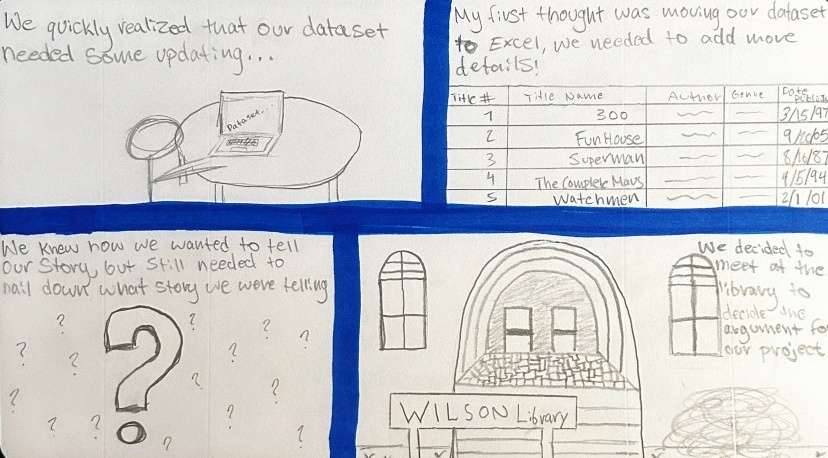 We quickly realized that our dataset
needed some updating...
Dataset...
My first thought was moving our dataset
to Excel, we needed to add more
details!
Title # Title Name Author Genre Date Publish
1 300 3/15/97
2 Fun House
3 Superman
4 The Complete Maus 4/5/94
5 Watchmen 2/1/01
We knew how we wanted to tell
our story, but still needed to
nail down what story we were telling
?
We decided to
meet at the
library to
decide the
argument for
our project
WILSON Library